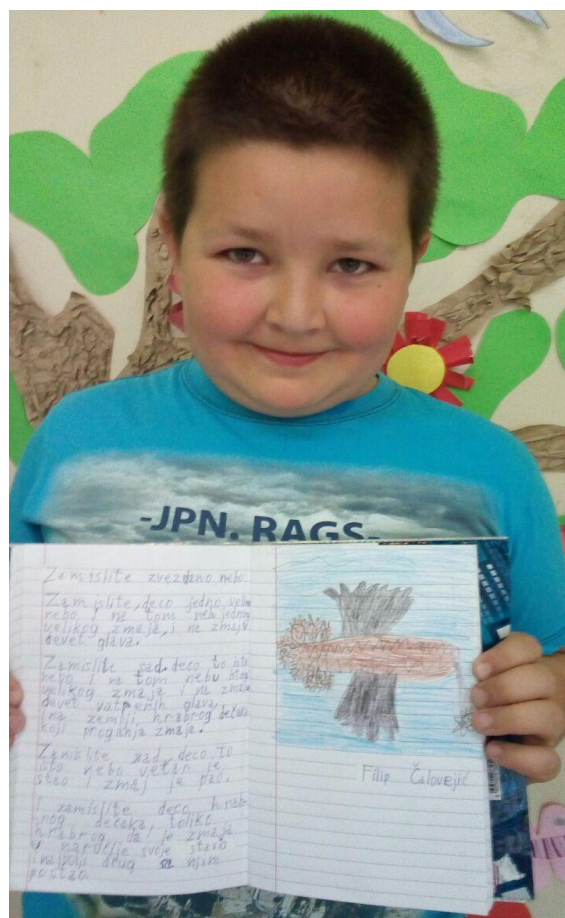 -JPN. RAGS-
Zamislite zvezdano nebo
Zamislite, deco jedno veliko
nebo i na tom nebu jednog
velikog zmaja, i na zmaju
devet glava.
Zamislite sad deco to isto
nebo i na tom nebu istog
velikog zmaja i na zmaju
devet vatrenih glava,
i na zemlji hrabrog dečaka
koji proganja zmaja.
Zamislite sad, deco, to
isto nebo vetar je
stao i zmaj je pao.
I zamislite deco hrab-
rog dečaka, toliko
hrabrog da je zmaja
u naručje svoje stavio
i najbolji drug sa njim
postao.
Filip Čalovejić